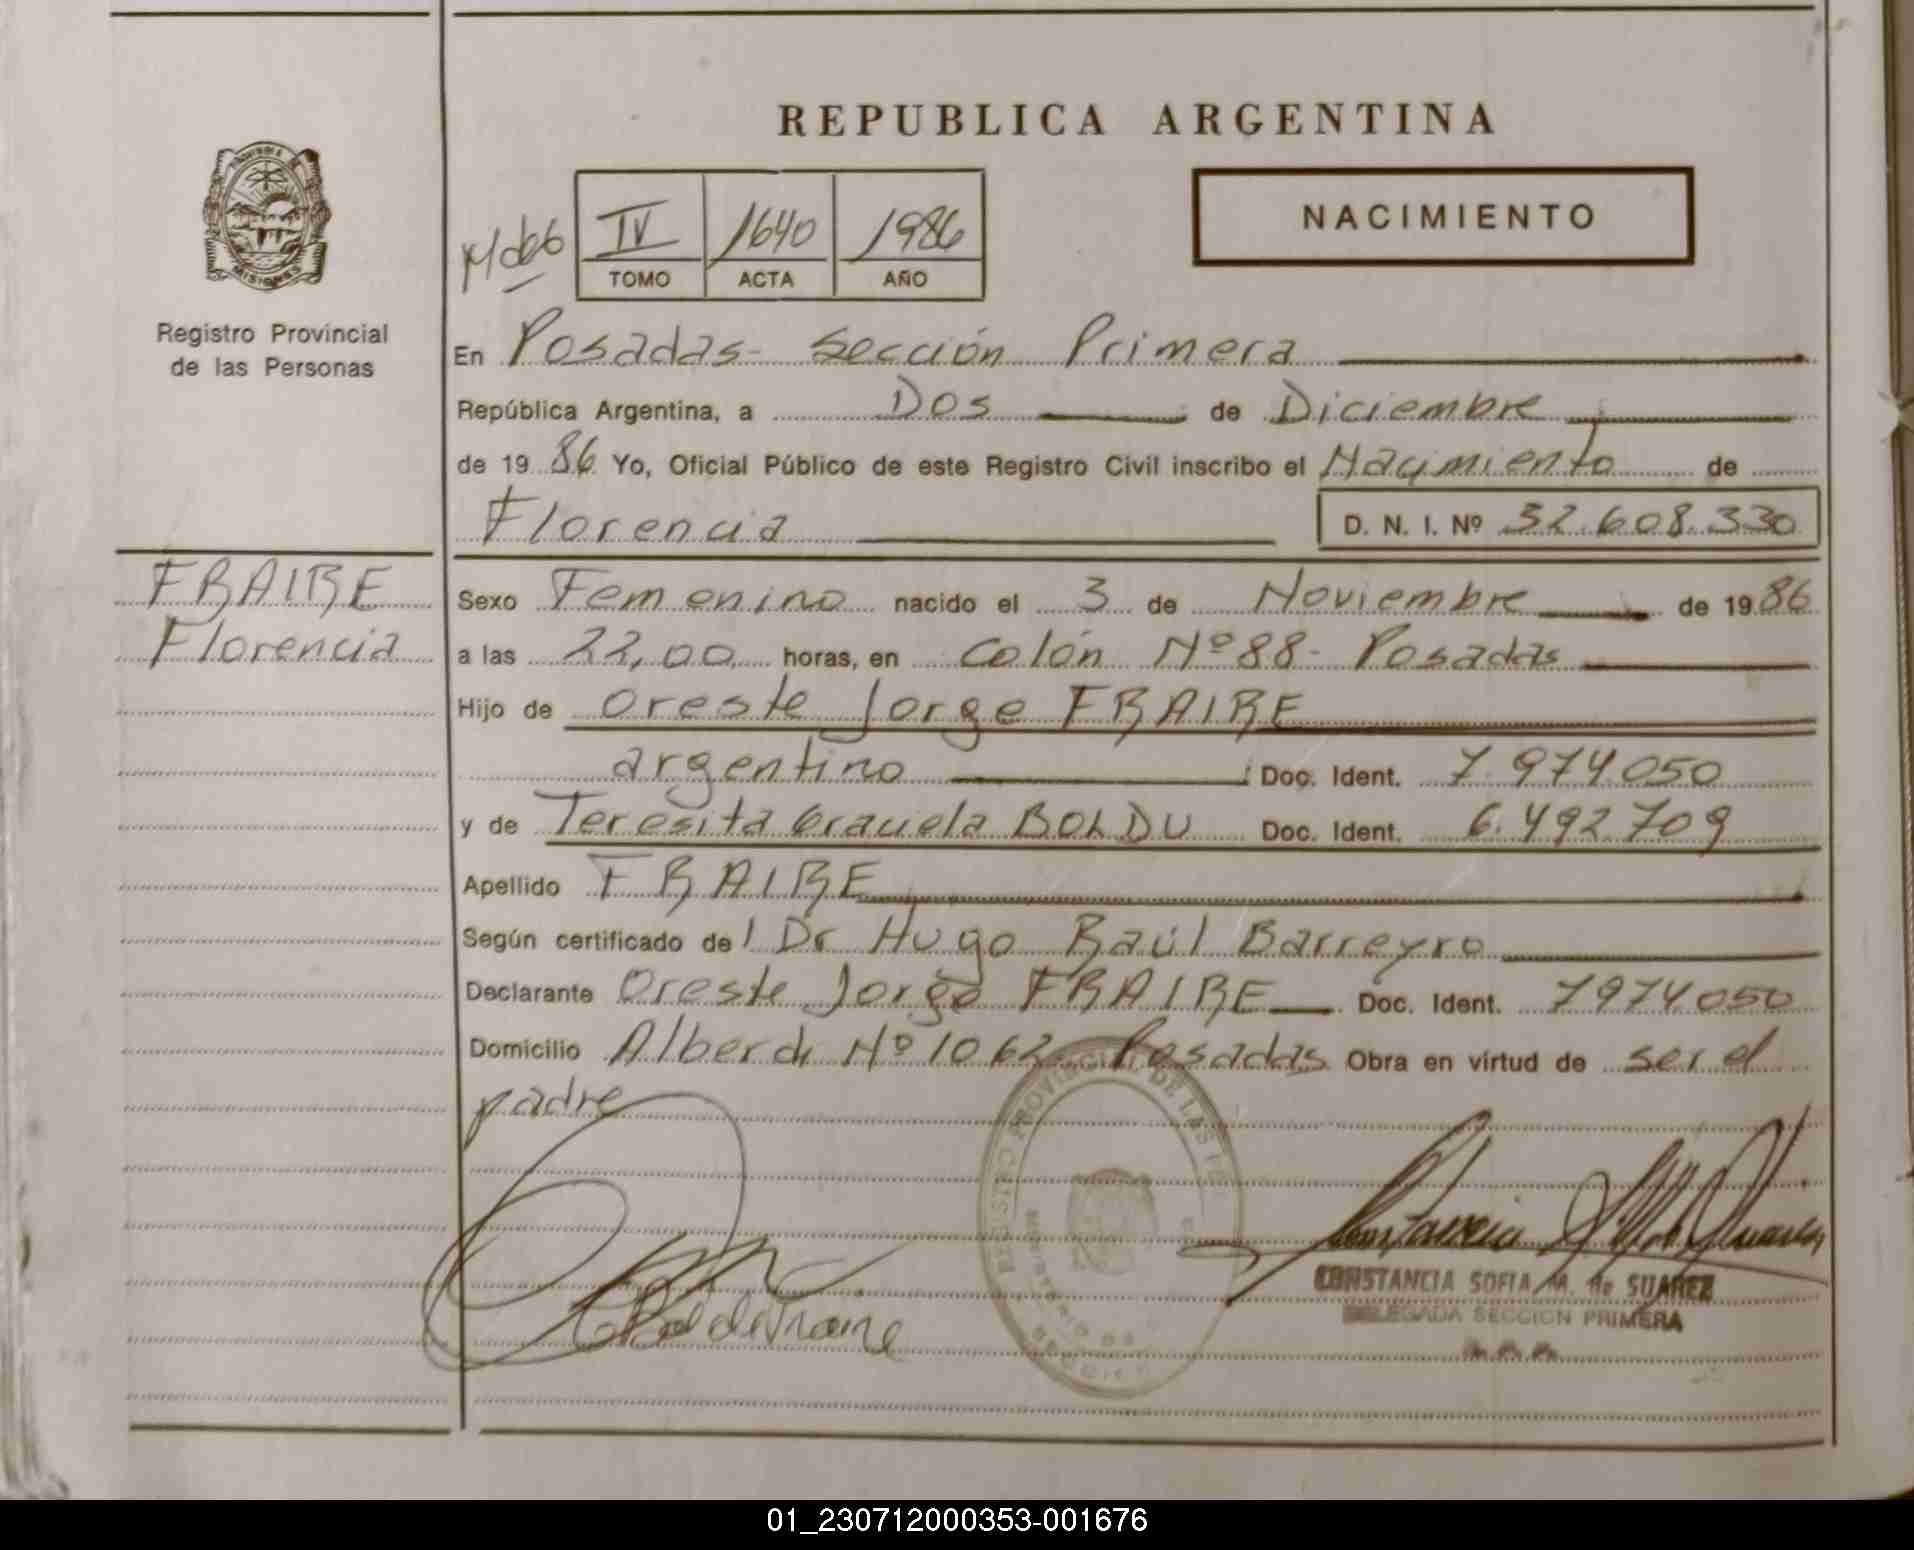 REPUBLICA ARGENTINA
NACIMIENTO
IV 1640 1986
TOMO ACTA AÑO
PROVINCIA DE
MISIONES
Registro Provincial
de las Personas
En Posadas- Sección Primera
República Argentina, a Dos de Diciembre
de 1986 Yo, Oficial Público de este Registro Civil inscribo el Nacimiento de
Florencia D. N. I. Nº 32.608.330
FRAIRE
Florencia
Sexo Femenino nacido el 3 de Noviembre de 1986
a las 22,00 horas, en Colón Nº 88- Posadas
Hijo de Oreste Jorge FRAIRE
argentino Doc. Ident. 7.974.050
y de Teresita Graciela BOLDU Doc. Ident. 6.492.709
Apellido FRAIRE
Según certificado del Dr Hugo Raúl Barreyro
Declarante Oreste Jorge FRAIRE Doc. Ident. 7974050
Domicilio Alberdi Nº 1062- Posadas Obra en virtud de ser el
padre
REGISTRO PROVINCIAL DE LAS
MINISTERIO DE
CONSTANCIA SOFIA M. de SUAREZ
DELEGADA SECCION PRIMERA
01_230712000353-001676